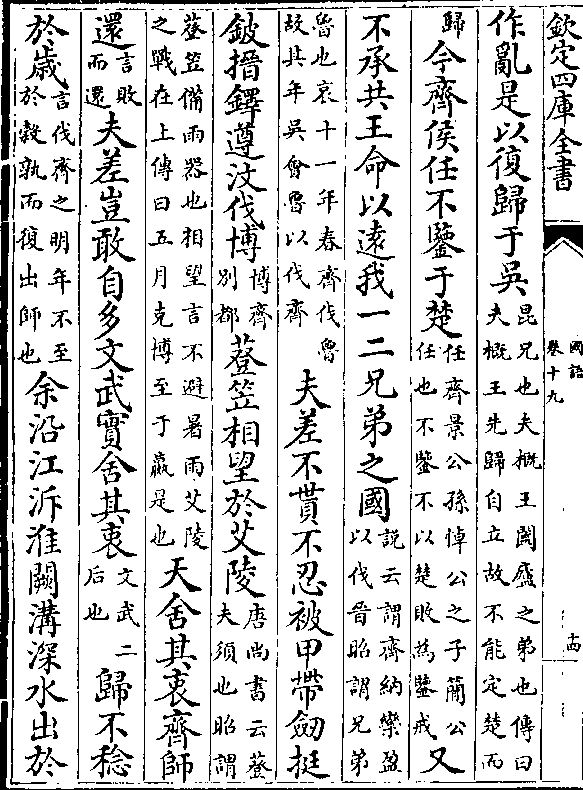 欽定四庫全書
國語
卷十九
十四
作亂是以復歸于吳昆兄也夫概王闔廬之弟也傳曰夫概王先歸自立故不能定楚而
歸今齊侯任不鑒于楚任齊景公孫悼公之子簡公任也不鑒不以楚敗為鑒戒又
不承共王命以遠我一二兄弟之國説云謂齊納欒盈以伐晉昭謂兄弟
魯也哀十一年春齊伐魯故其年吳會魯以伐齊夫差不貰不忍被甲帶劒挺
鈹搢鐸遵汶伐博博齊別都簦笠相望於艾陵唐尚書云簦夫須也昭謂
簦笠備雨器也相望言不避暑雨艾陵之戰在上傳曰五月克博至于嬴是也天舍其衷齊師
還言敗而還夫差豈敢自多文武實舍其衷文武二后也歸不稔
於歲言伐齊之明年不至於穀孰而復出師也余沿江泝淮闕溝深水出於